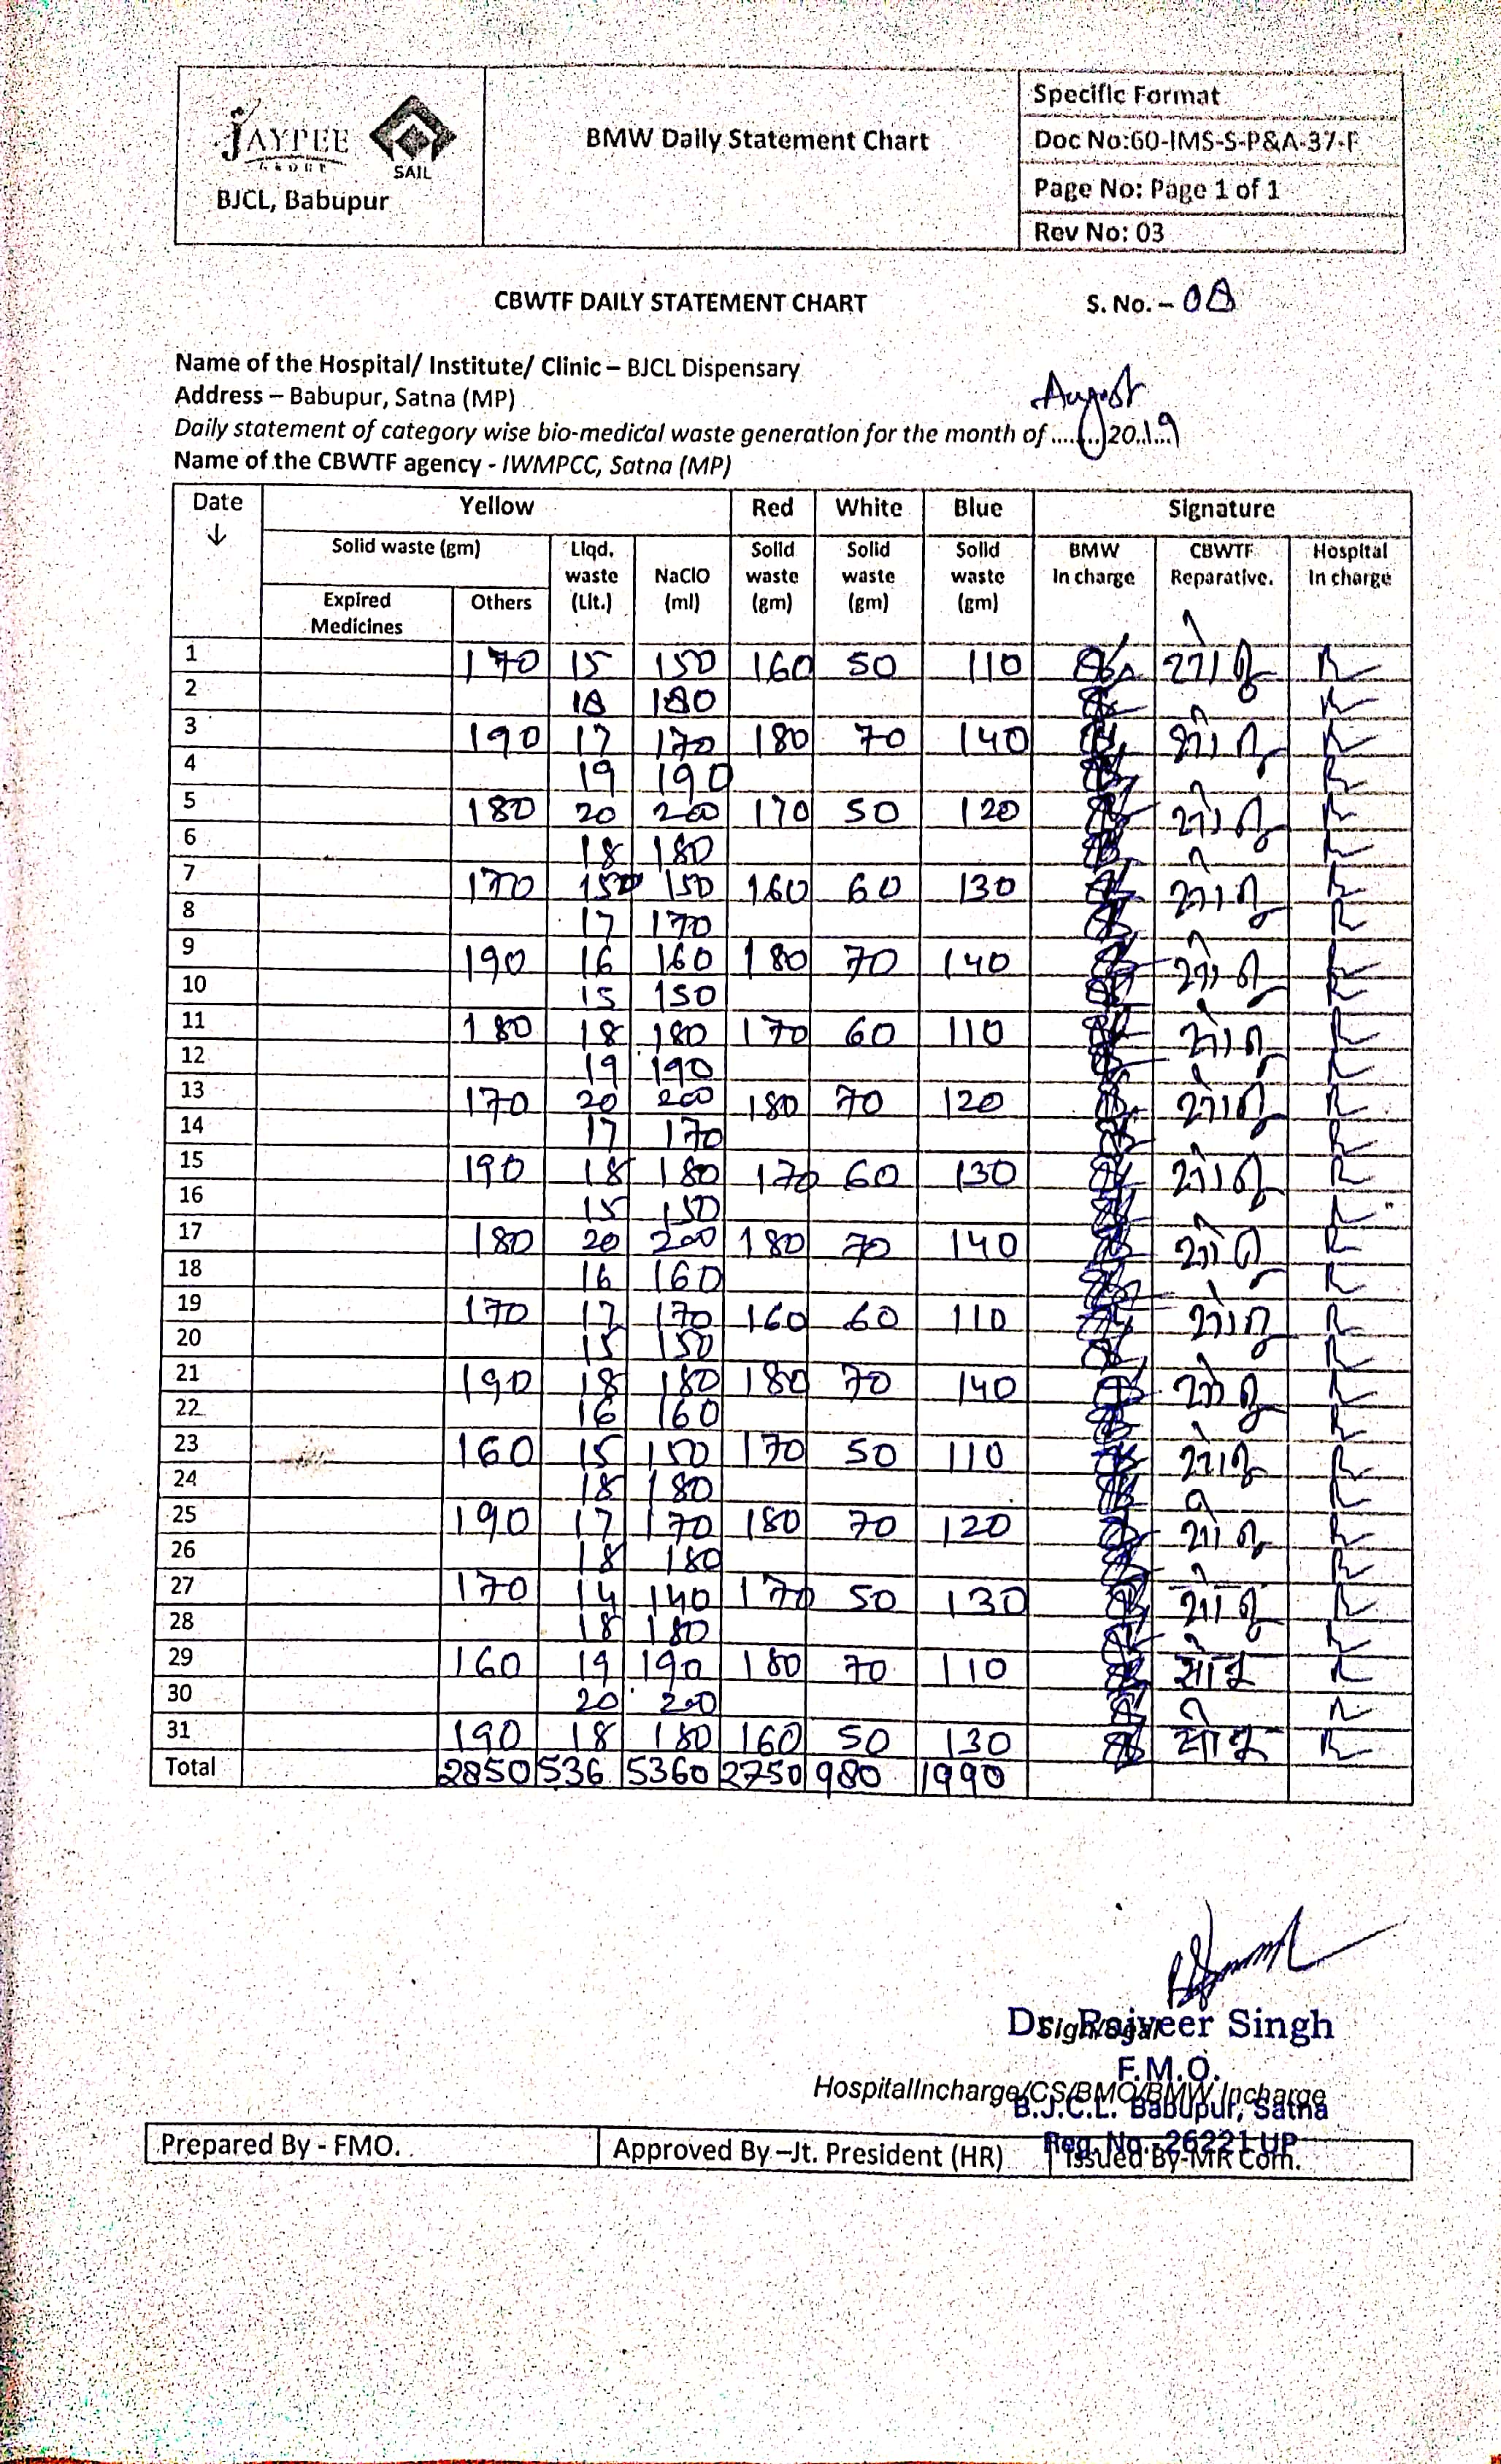 JAYPEE
GROUP
SAIL
BJCL, Babupur
BMW Daily Statement Chart
Specific Format
Doc No:60-IMS-S-P&A-37-F
Page No: Page 1 of 1
Rev No: 03
CBWTF DAILY STATEMENT CHART S. No. – 08
Name of the Hospital/ Institute/ Clinic – BJCL Dispensary
Address – Babupur, Satna (MP)
Daily statement of category wise bio-medical waste generation for the month of August 2019
Name of the CBWTF agency - IWMPCC, Satna (MP)
Date ↓ Yellow Red White Blue Signature
Solid waste (gm) Liqd. waste (Lit.) NaClO (ml) Solid waste (gm) Solid waste (gm) Solid waste (gm) BMW In charge CBWTF Reparative. Hospital In charge
Expired Medicines Others
1 170 15 150 160 50 110 सोनू
2 18 180
3 190 17 170 180 70 140 सोनू
4 19 190
5 180 20 200 170 50 120 सोनू
6 18 180
7 170 150 150 160 60 130 सोनू
8 17 170
9 190 16 160 180 70 140 सोनू
10 15 150
11 180 18 180 170 60 110 सोनू
12 19 190
13 170 20 200 180 70 120 सोनू
14 17 170
15 190 18 180 170 60 130 सोनू
16 15 150
17 180 20 200 180 70 140 सोनू
18 16 160
19 170 17 170 160 60 110 सोनू
20 15 150
21 190 18 180 180 70 140 सोनू
22 16 160
23 160 15 150 170 50 110 सोनू
24 18 180
25 190 17 170 180 70 120 सोनू
26 18 180
27 170 14 140 170 50 130 सोनू
28 18 180
29 160 19 190 180 70 110 सोनू
30 20 200
31 190 18 180 160 50 130 सोनू
Total 2850 536 5360 2750 980 1990
Dr. Rajveer Singh
F.M.O.
HospitalIncharge/CS/BMO/BMW Incharge
B.J.C.L. Babupur, Satna
Reg. No.-26221 UP
Prepared By - FMO. Approved By –Jt. President (HR) Issued By-MR Com.